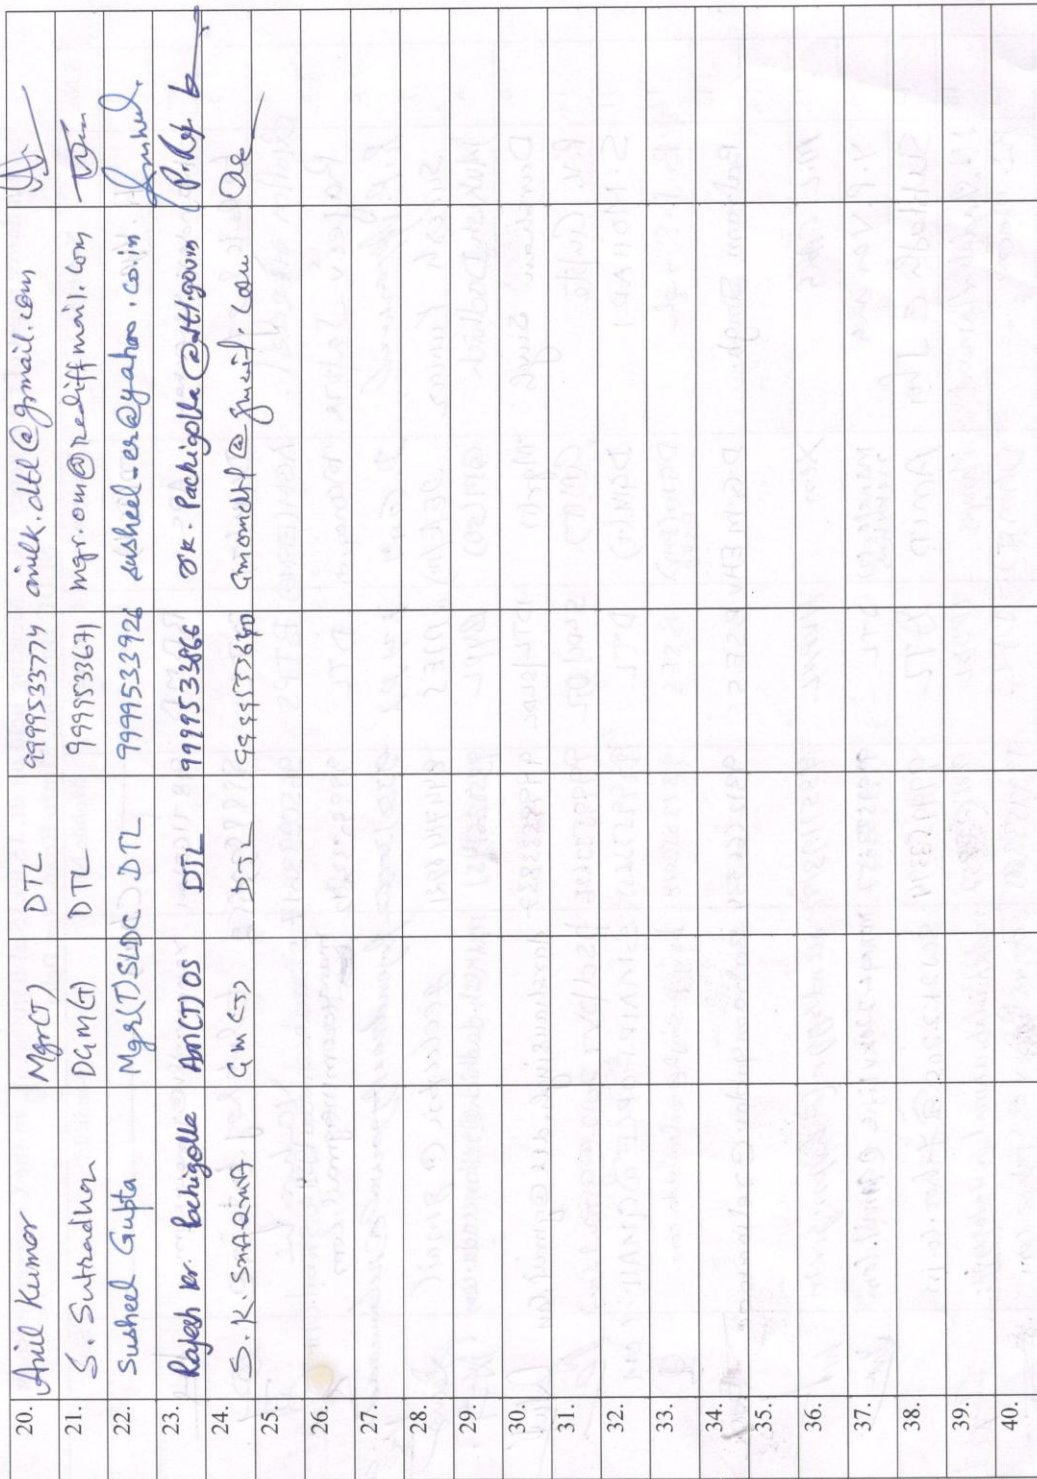 20. Anil Kumar Mgr(T) DTL 9999535774 anilk.dtl@gmail.com
21. S. Sutradhar DGM(T) DTL 9999533671 mgr.om@rediffmail.com
22. Susheel Gupta Mgr(T)SLDC DTL 9999533926 susheel_er@yahoo.co.in
23. Rajesh Kr. Pachigolla AM(T) OS DTL 9999533866 rk.Pachigolla@dtl.gov.in
24. S.K. SHARMA GM(T) DTL
25.
26.
27.
28.
29.
30.
31.
32.
33.
34.
35.
36.
37.
38.
39.
40.